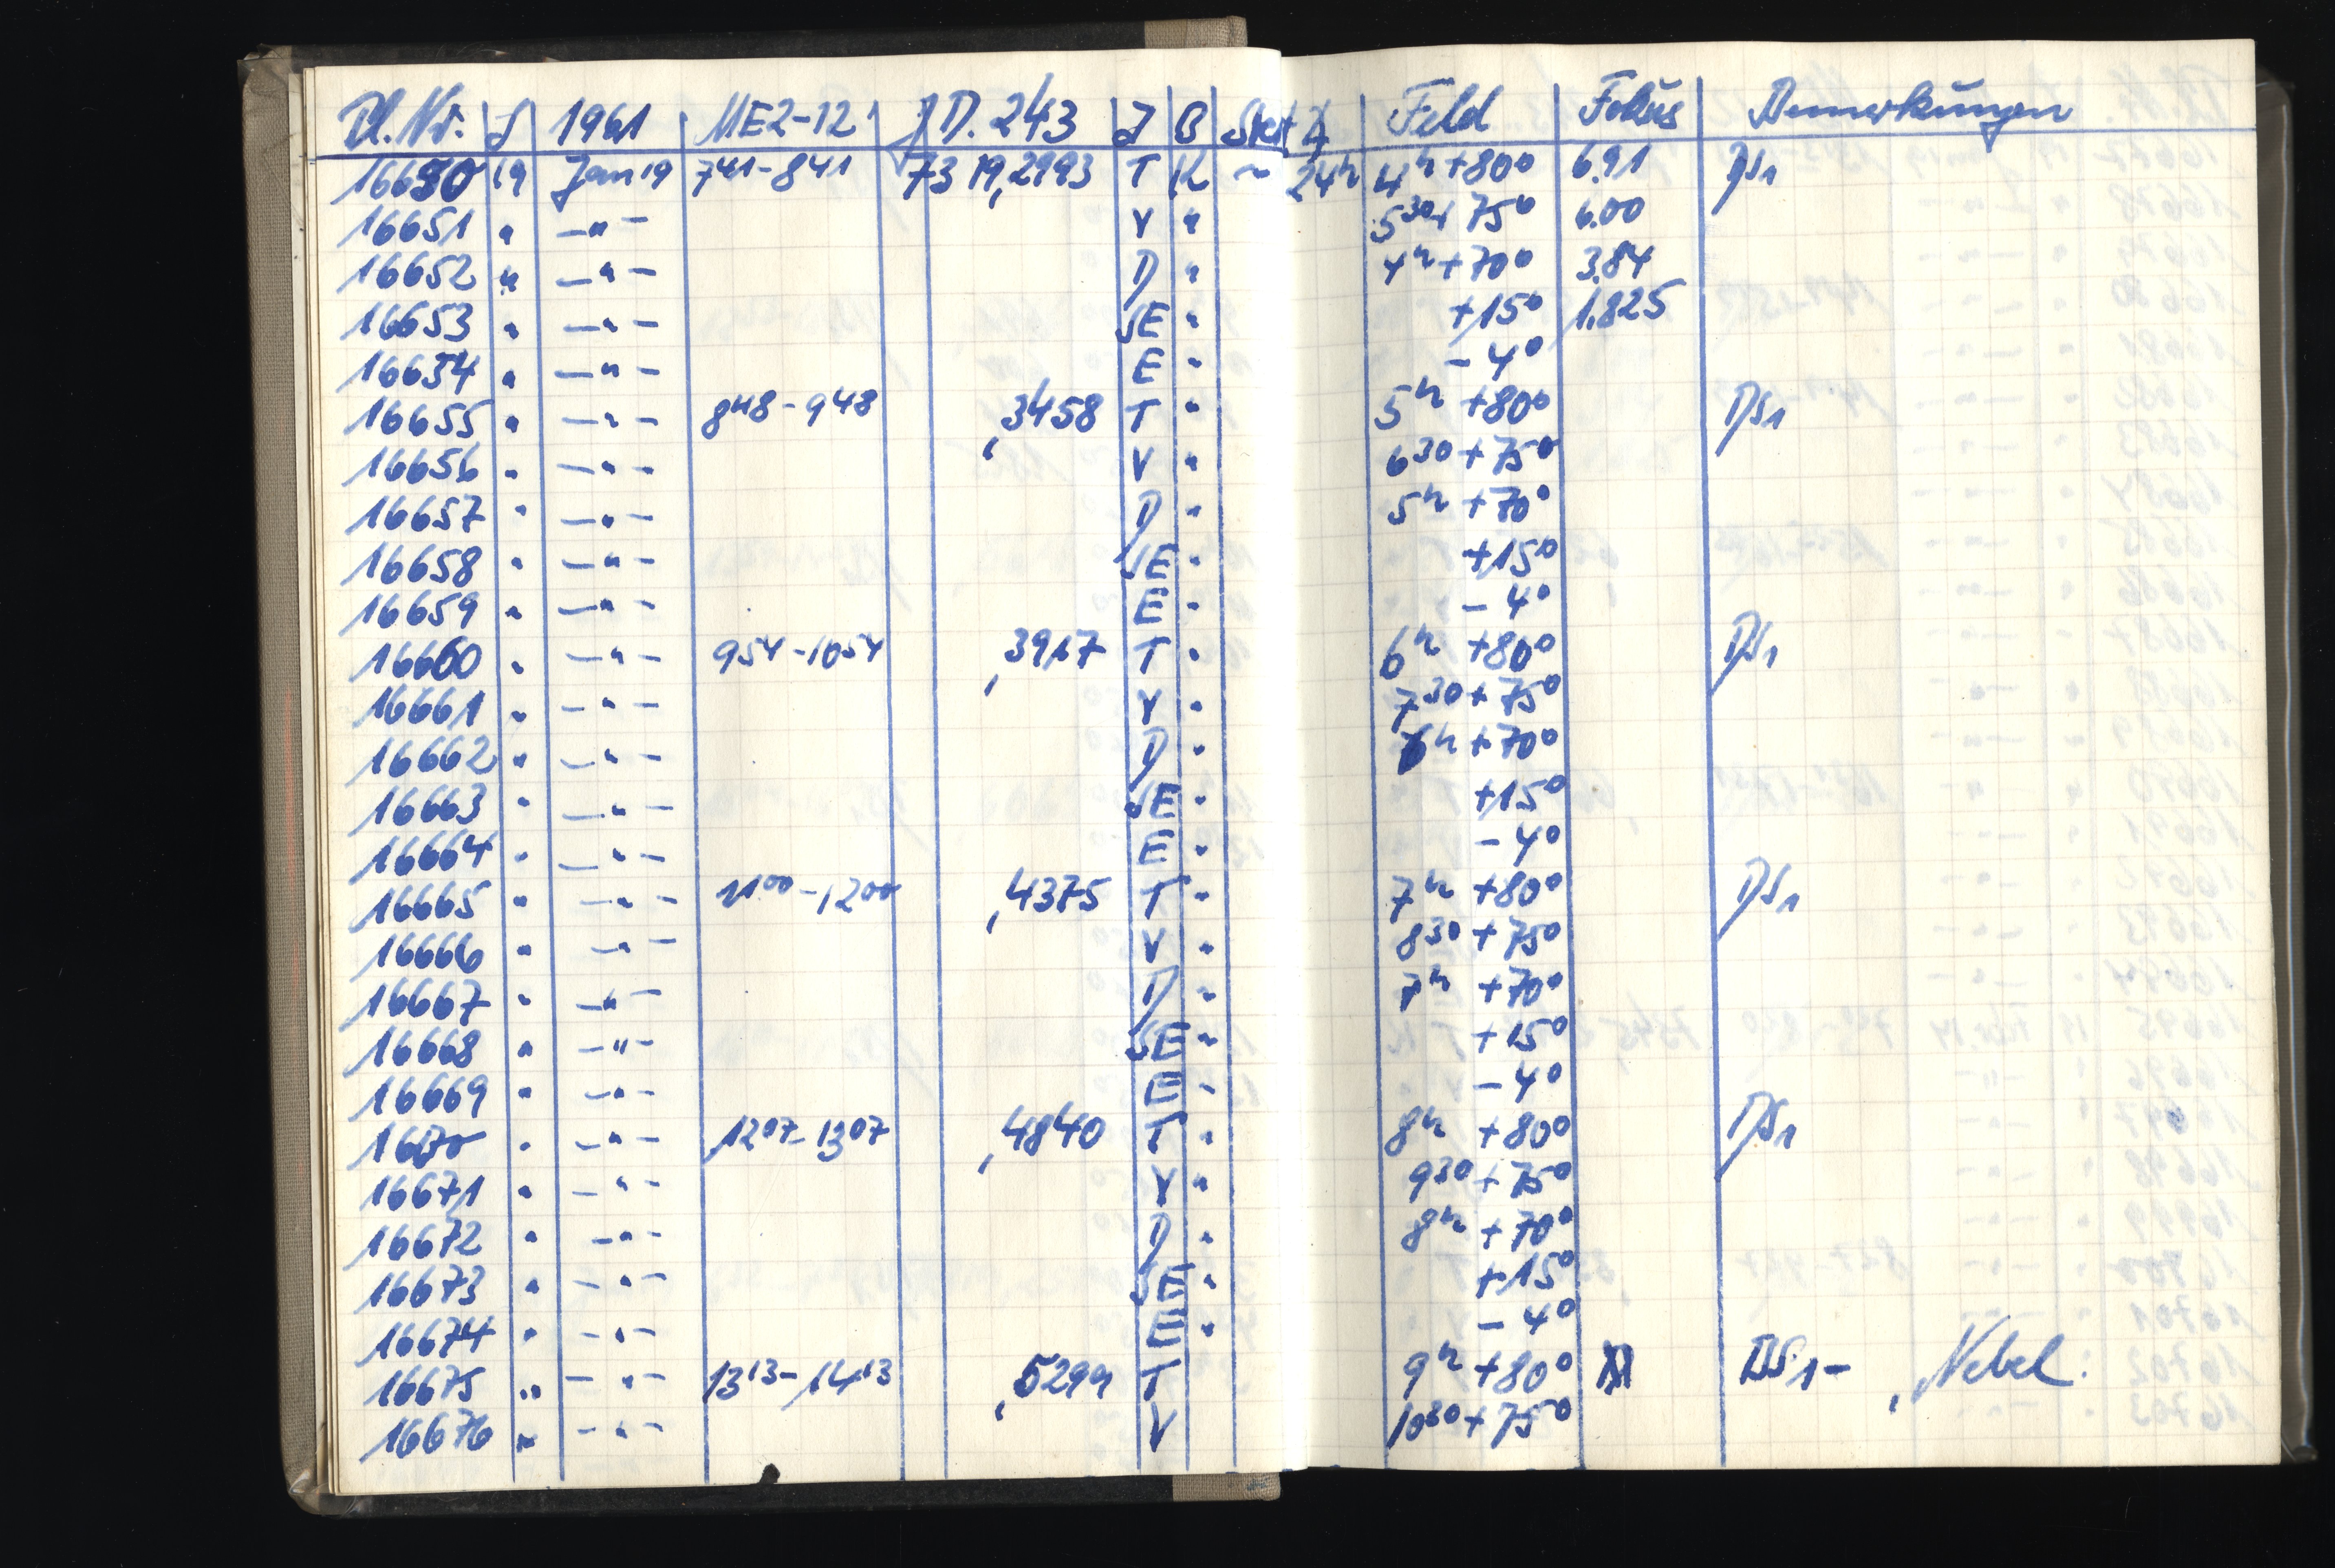 Pl. Nr. S 1961 ME2-12 J D. 243 J B Stst Z Feld Fokus Bemerkungen
16650 19 Jan 19 7 41 - 8 41 73 19,2993 T K ~ 24h 4h +80° 6.91 DS1
16651 " -"- V " 5 30 + 75° 6.00
16652 " -"- D " 4h +70° 3.84
16653 " -"- SE " +15° 1.825
16654 " -"- E " - 4°
16655 " -"- 8 48 - 9 48 ,3458 T " 5h +80° DS1
16656 " -"- V " 6 30 +75°
16657 " -"- D " 5h +70°
16658 " -"- SE " +15°
16659 " -"- E " - 4°
16660 " -"- 9 54 - 10 54 ,3917 T " 6h +80° DS1
16661 " -"- V " 7 30 + 75°
16662 " -"- D " 6h +70°
16663 " -"- SE " +15°
16664 " -"- E " - 4°
16665 " -"- 11 00 - 12 00 ,4375 T " 7h +80° DS1
16666 " -"- V " 8 30 + 75°
16667 " -"- D " 7h +70°
16668 " -"- SE " +15°
16669 " -"- E " - 4°
16670 " -"- 12 07 - 13 07 ,4840 T " 8h +80° DS1
16671 " -"- V " 9 30 + 75°
16672 " -"- D " 8h +70°
16673 " -"- SE " +15°
16674 " -"- E " - 4°
16675 " -"- 13 13 - 14 13 ,5299 T 9h +80° DS1- , Nebel.
16676 " -"- V 10 30 + 75°